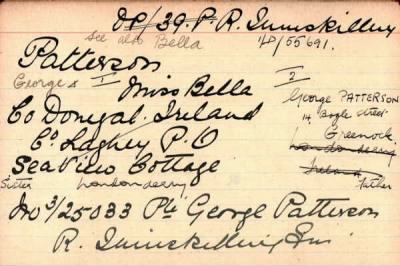 DP/39. P. R. Inniskilling
See also Bella 1P/55691.
Patterson
George & 1 Miss Bella 2
Co Donegal. Ireland George PATTERSON
14 Bogle street
Co Laghey P.O Greenock
Sea View Cottage Londonderry
Ireland
Sister Londonderry Father
No 3/25033 Pte George Patterson
R. Inniskilling Fus